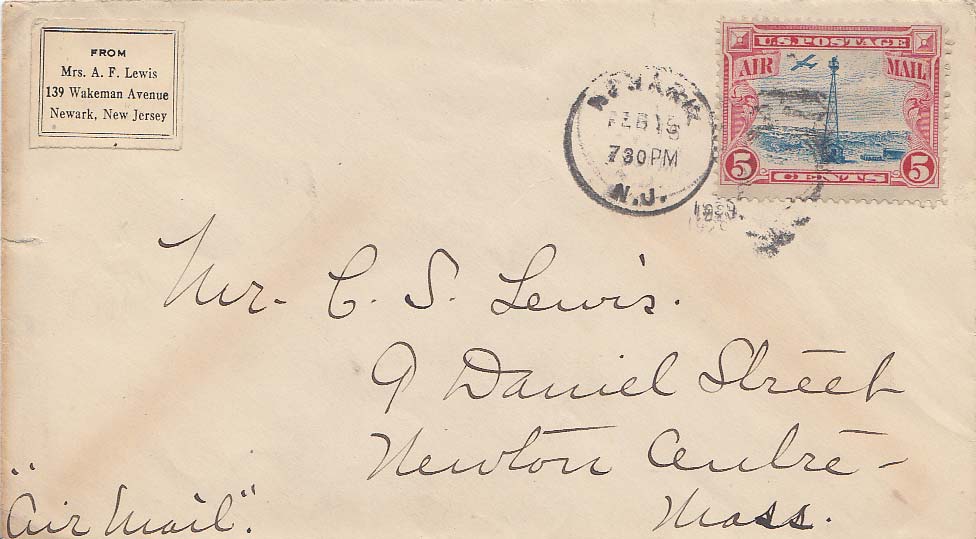 FROM
Mrs. A. F. Lewis
139 Wakeman Avenue
Newark, New Jersey
NEWARK
FEB 18
730PM
N.J.
U.S. POSTAGE
AIR MAIL
5 CENTS 5
Mr. C. S. Lewis.
9 Daniel Street
Newton Centre -
Mass.
"Air Mail".